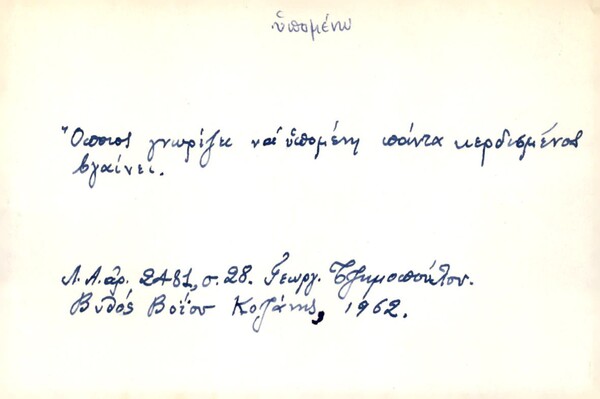 ὑπομένω
Ὅποιος γνωρίζει να ὑπομένη πάντα κερδισμένος
βγαίνει.
Λ.Α. ἀρ. 2481, σ. 28. Γεωργ. Τζημοπούλου.
Βυθός Βοΐου Κοζάνης, 1962.